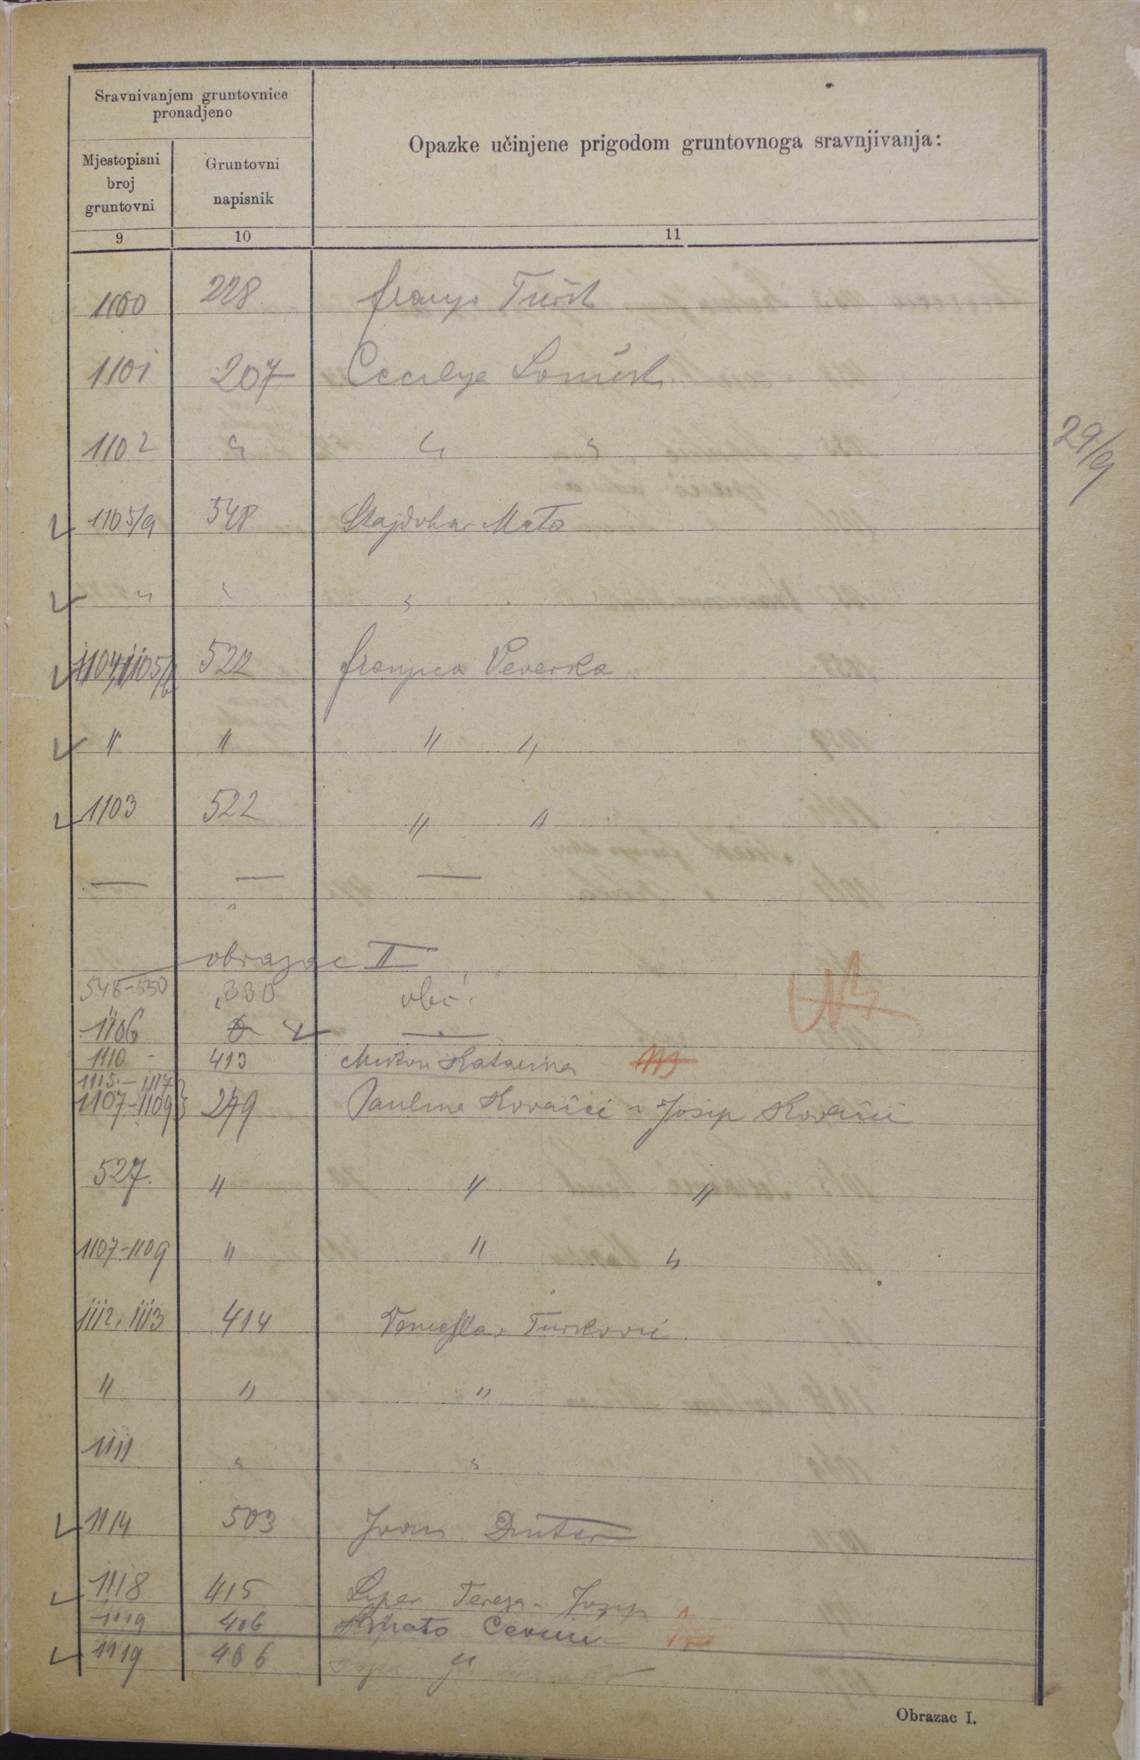 Sravnivanjem gruntovnice
pronadjeno
Opazke učinjene prigodom gruntovnoga sravnjivanja:
Mjestopisni
broj
gruntovni
Gruntovni
napisnik
9 10 11
1100 228 Franjo Turk
1101 207 Cecilija
1102 " " "
29/9
1105/9 548 Mato
" " "
1104, 1105/ 522 Franjica Veverka
" " " "
1103 522 " "
— — —
obrazac II
548-550 330 obć.
1106 —
1110 413 Katarina
1115.-1117
1107-1109 279 Pauline Kovačić i Josip Kovačić
527. " " "
1107-1109 " " "
1112, 1113 414 Turković
" " "
1111 " "
1114 503 Ivan
1118 415 Tereza Josip
1119 406
1119 406 "
Obrazac I.